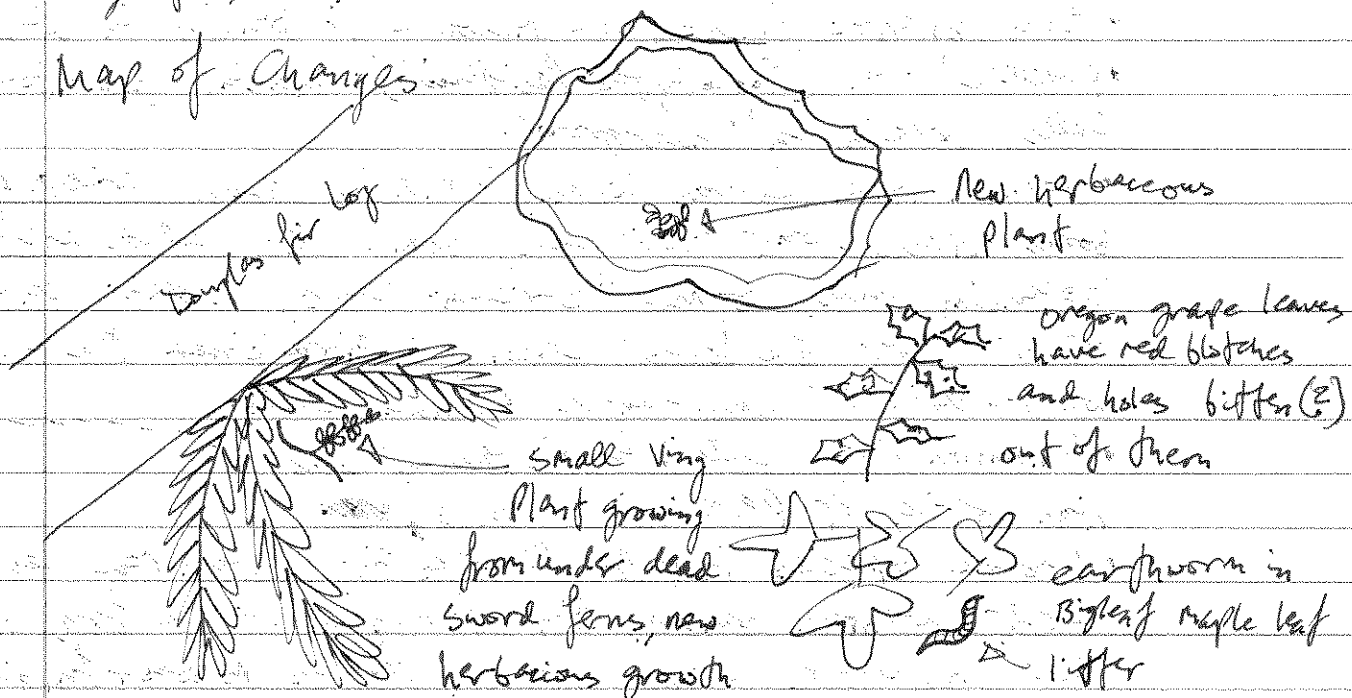 Map of Changes
Douglas fir log
New herbaceous
plant
oregon grape leaves
have red blotches
and holes bitten(?)
out of them
small Ving
Plant growing
from under dead
sword ferns, new
herbacious growth
earthworm in
Bigleaf maple leaf
litter